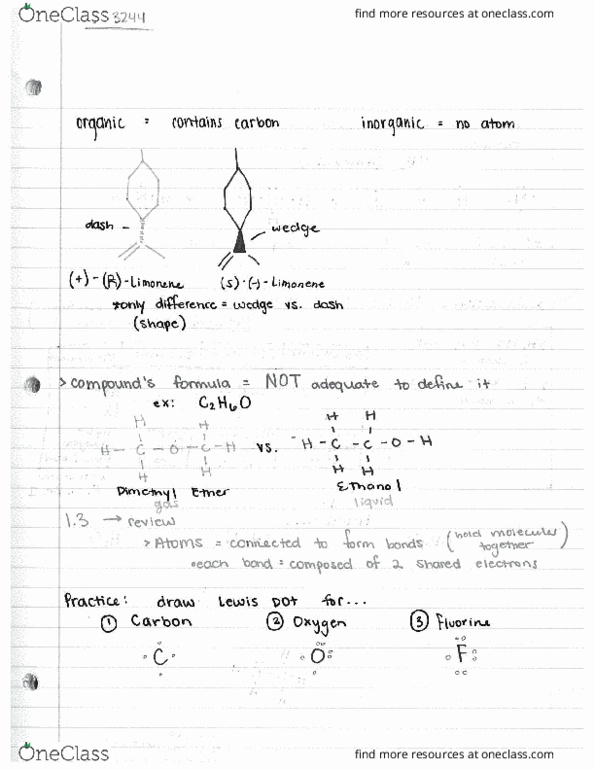 OneClass 3244
find more resources at oneclass.com
organic = contains carbon inorganic = no atom
dash -
wedge
(+)-(R)-Limonene (S)-(-)-Limonene
*only difference = wedge vs. dash
(shape)
> compound's formula = NOT adequate to define it
ex: C2H6O
H H H H
H - C - O - C - H vs. H - C - C - O - H
H H H H
Dimethyl Ether Ethanol
gas liquid
1.3 → review
> Atoms = connected to form bonds (hold molecules together)
• each bond = composed of 2 shared electrons
Practice: draw Lewis Dot for...
① Carbon ② Oxygen ③ Fluorine
C O F
OneClass
find more resources at oneclass.com